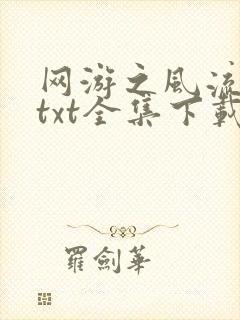 网游之风流
txt全集下载
羅劍華